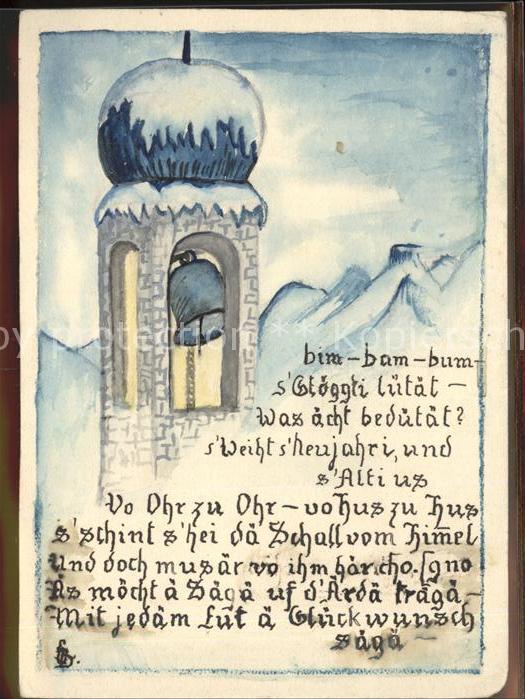 bim-bam-bum-
s'Glöggli lütät -
Was ächt bedütät?
s'Weiht s'Neujahr i, und
s'Alti us
Vo Ohr zu Ohr - vo hus zu hus
s'schint s'hei dä Schall vom himel
und doch mus är vo ihm här cho. [gno
Äs möcht ä Sägä uf d'Ärdä trägä -
Mit jedäm Lüt ä Glückwunsch
sägä -
by protection ** Kopiersch